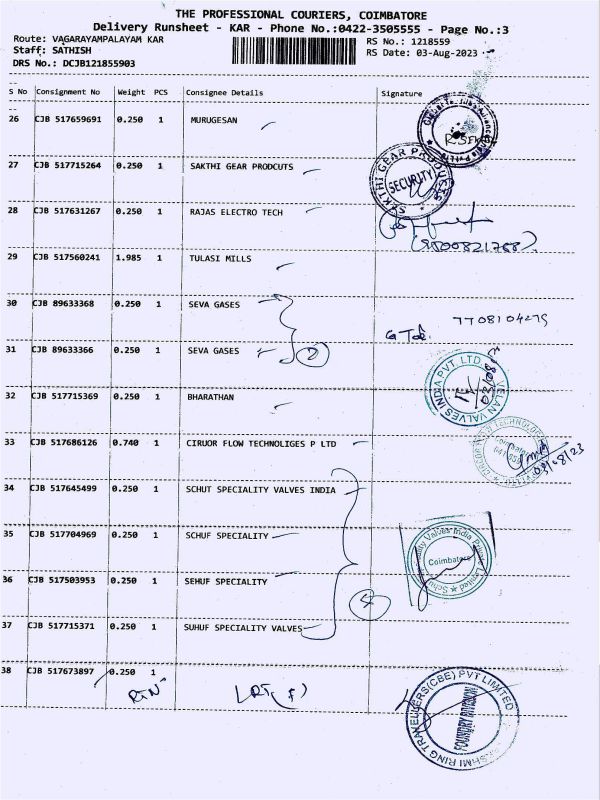 THE PROFESSIONAL COURIERS, COIMBATORE
Delivery Runsheet - KAR - Phone No.:0422-3505555 - Page No.:3
Route: VAGARAYAMPALAYAM KAR RS No.: 1218559
Staff: SATHISH RS Date: 03-Aug-2023
DRS No.: DCJB121855903
S No Consignment No Weight PCS Consignee Details Signature
26 CJB 517659691 0.250 1 MURUGESAN
27 CJB 517715264 0.250 1 SAKTHI GEAR PRODCUTS
SAKTHI GEAR PRODUCTS
SECURITY
28 CJB 517631267 0.250 1 RAJAS ELECTRO TECH
29 CJB 517560241 1.985 1 TULASI MILLS
30 CJB 89633368 0.250 1 SEVA GASES
7708104275
31 CJB 89633366 0.250 1 SEVA GASES 2
VELAN VALVES INDIA PVT. LTD
32 CJB 517715369 0.250 1 BHARATHAN
33 CJB 517686126 0.740 1 CIRUOR FLOW TECHNOLIGES P LTD
03/08/23
34 CJB 517645499 0.250 1 SCHUT SPECIALITY VALVES INDIA
35 CJB 517704969 0.250 1 SCHUF SPECIALITY
Schuf Speciality Valves India Private Limited
Coimbatore
36 CJB 517503953 0.250 1 SEHUF SPECIALITY
4
37 CJB 517715371 0.250 1 SUHUF SPECIALITY VALVES
38 CJB 517673897 0.250 1
LAKSHMI RING TRAVELLERS(CBE) PVT LIMITED
FOUNDRY DIVISION